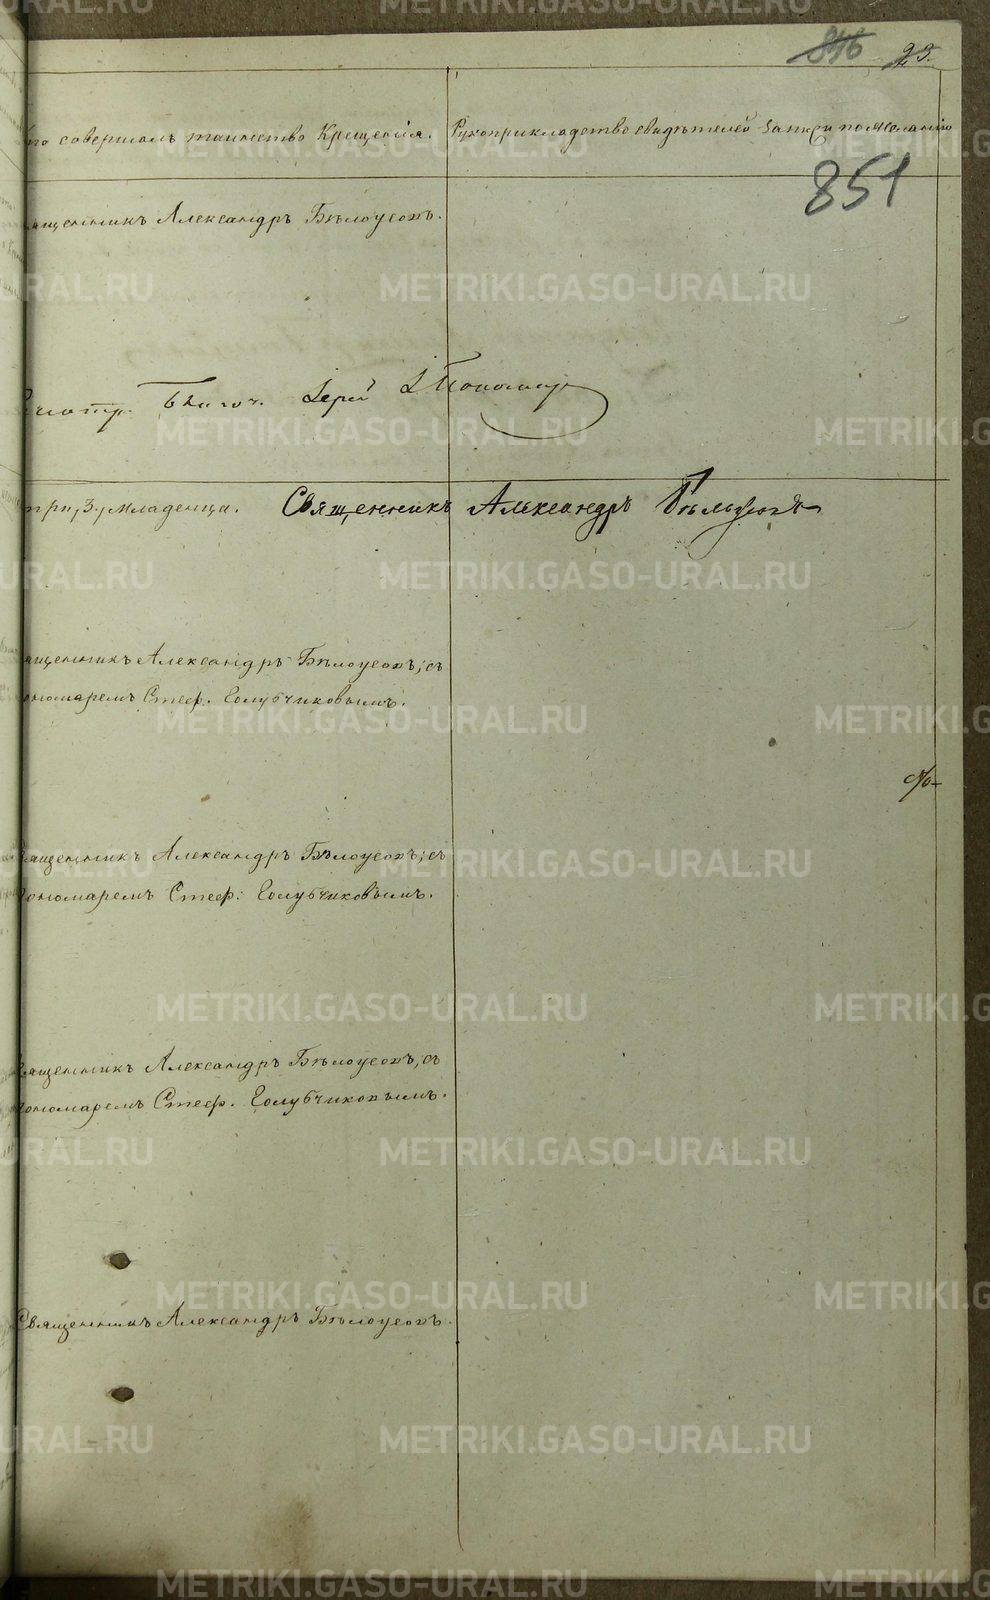 846 23.
то совершалъ таинство Крещенія. Рукоприкладство свидѣтелей записи по желанію
851
ященникъ Александръ Бѣлоусовъ.
смотр. Благоч. Іерей І Пономар
три, 3, младенца. Священникъ Александръ Бѣлоусовъ
ященникъ Александръ Бѣлоусовъ, съ
ономаремъ Стеф. Голубчиковымъ.
№
ященникъ Александръ Бѣлоусовъ, съ
ономаремъ Стеф: Голубчиковымъ.
ященникъ Александръ Бѣлоусовъ, съ
ономаремъ Стеф. Голубчиковымъ.
Священникъ Александръ Бѣлоусовъ.
METRIKI.GASO-URAL.RU